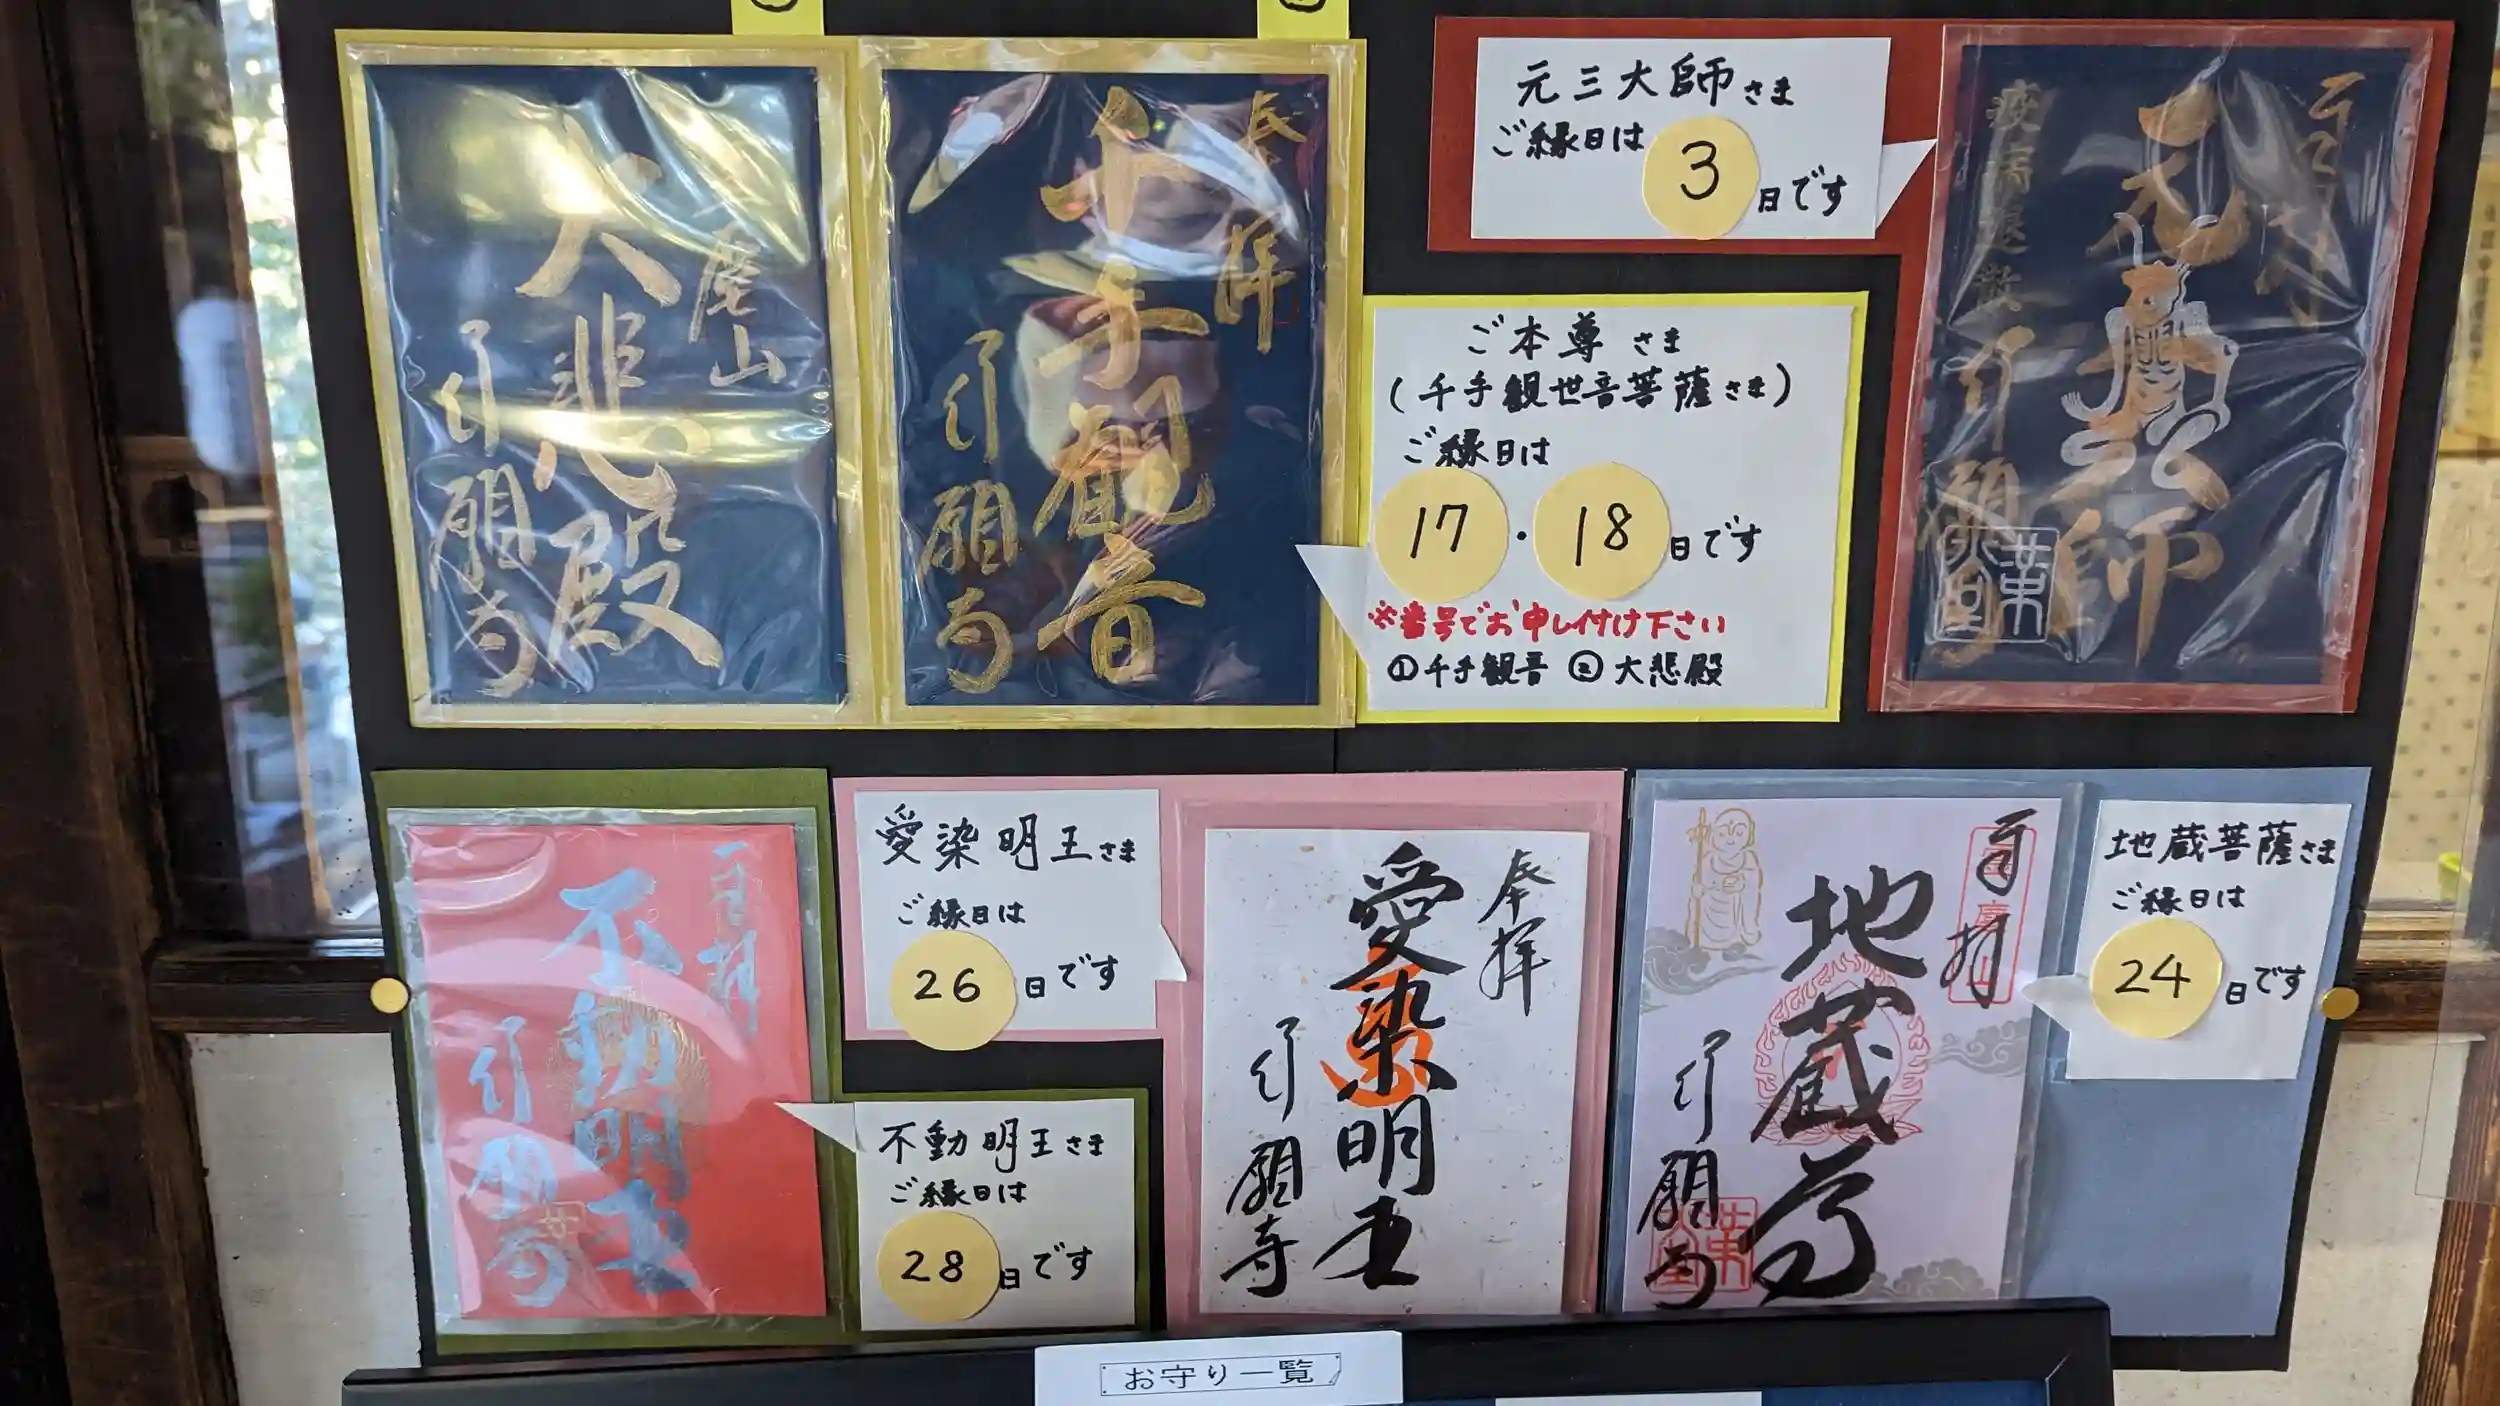 大悲殿
引願寺
奉拝
千手観音
引願寺
元三大師さま
ご縁日は
3日です
ご本尊さま
(千手観世音菩薩さま)
ご縁日は
17・18日です
※番号でお申し付け下さい
①千手観音 ②大悲殿
元三大師
疫病退散
不動明王
愛染明王さま
ご縁日は
26日です
不動明王さま
ご縁日は
28日です
奉拝
愛染明王
引願寺
地蔵尊
引願寺
地蔵菩薩さま
ご縁日は
24日です
お守り一覧